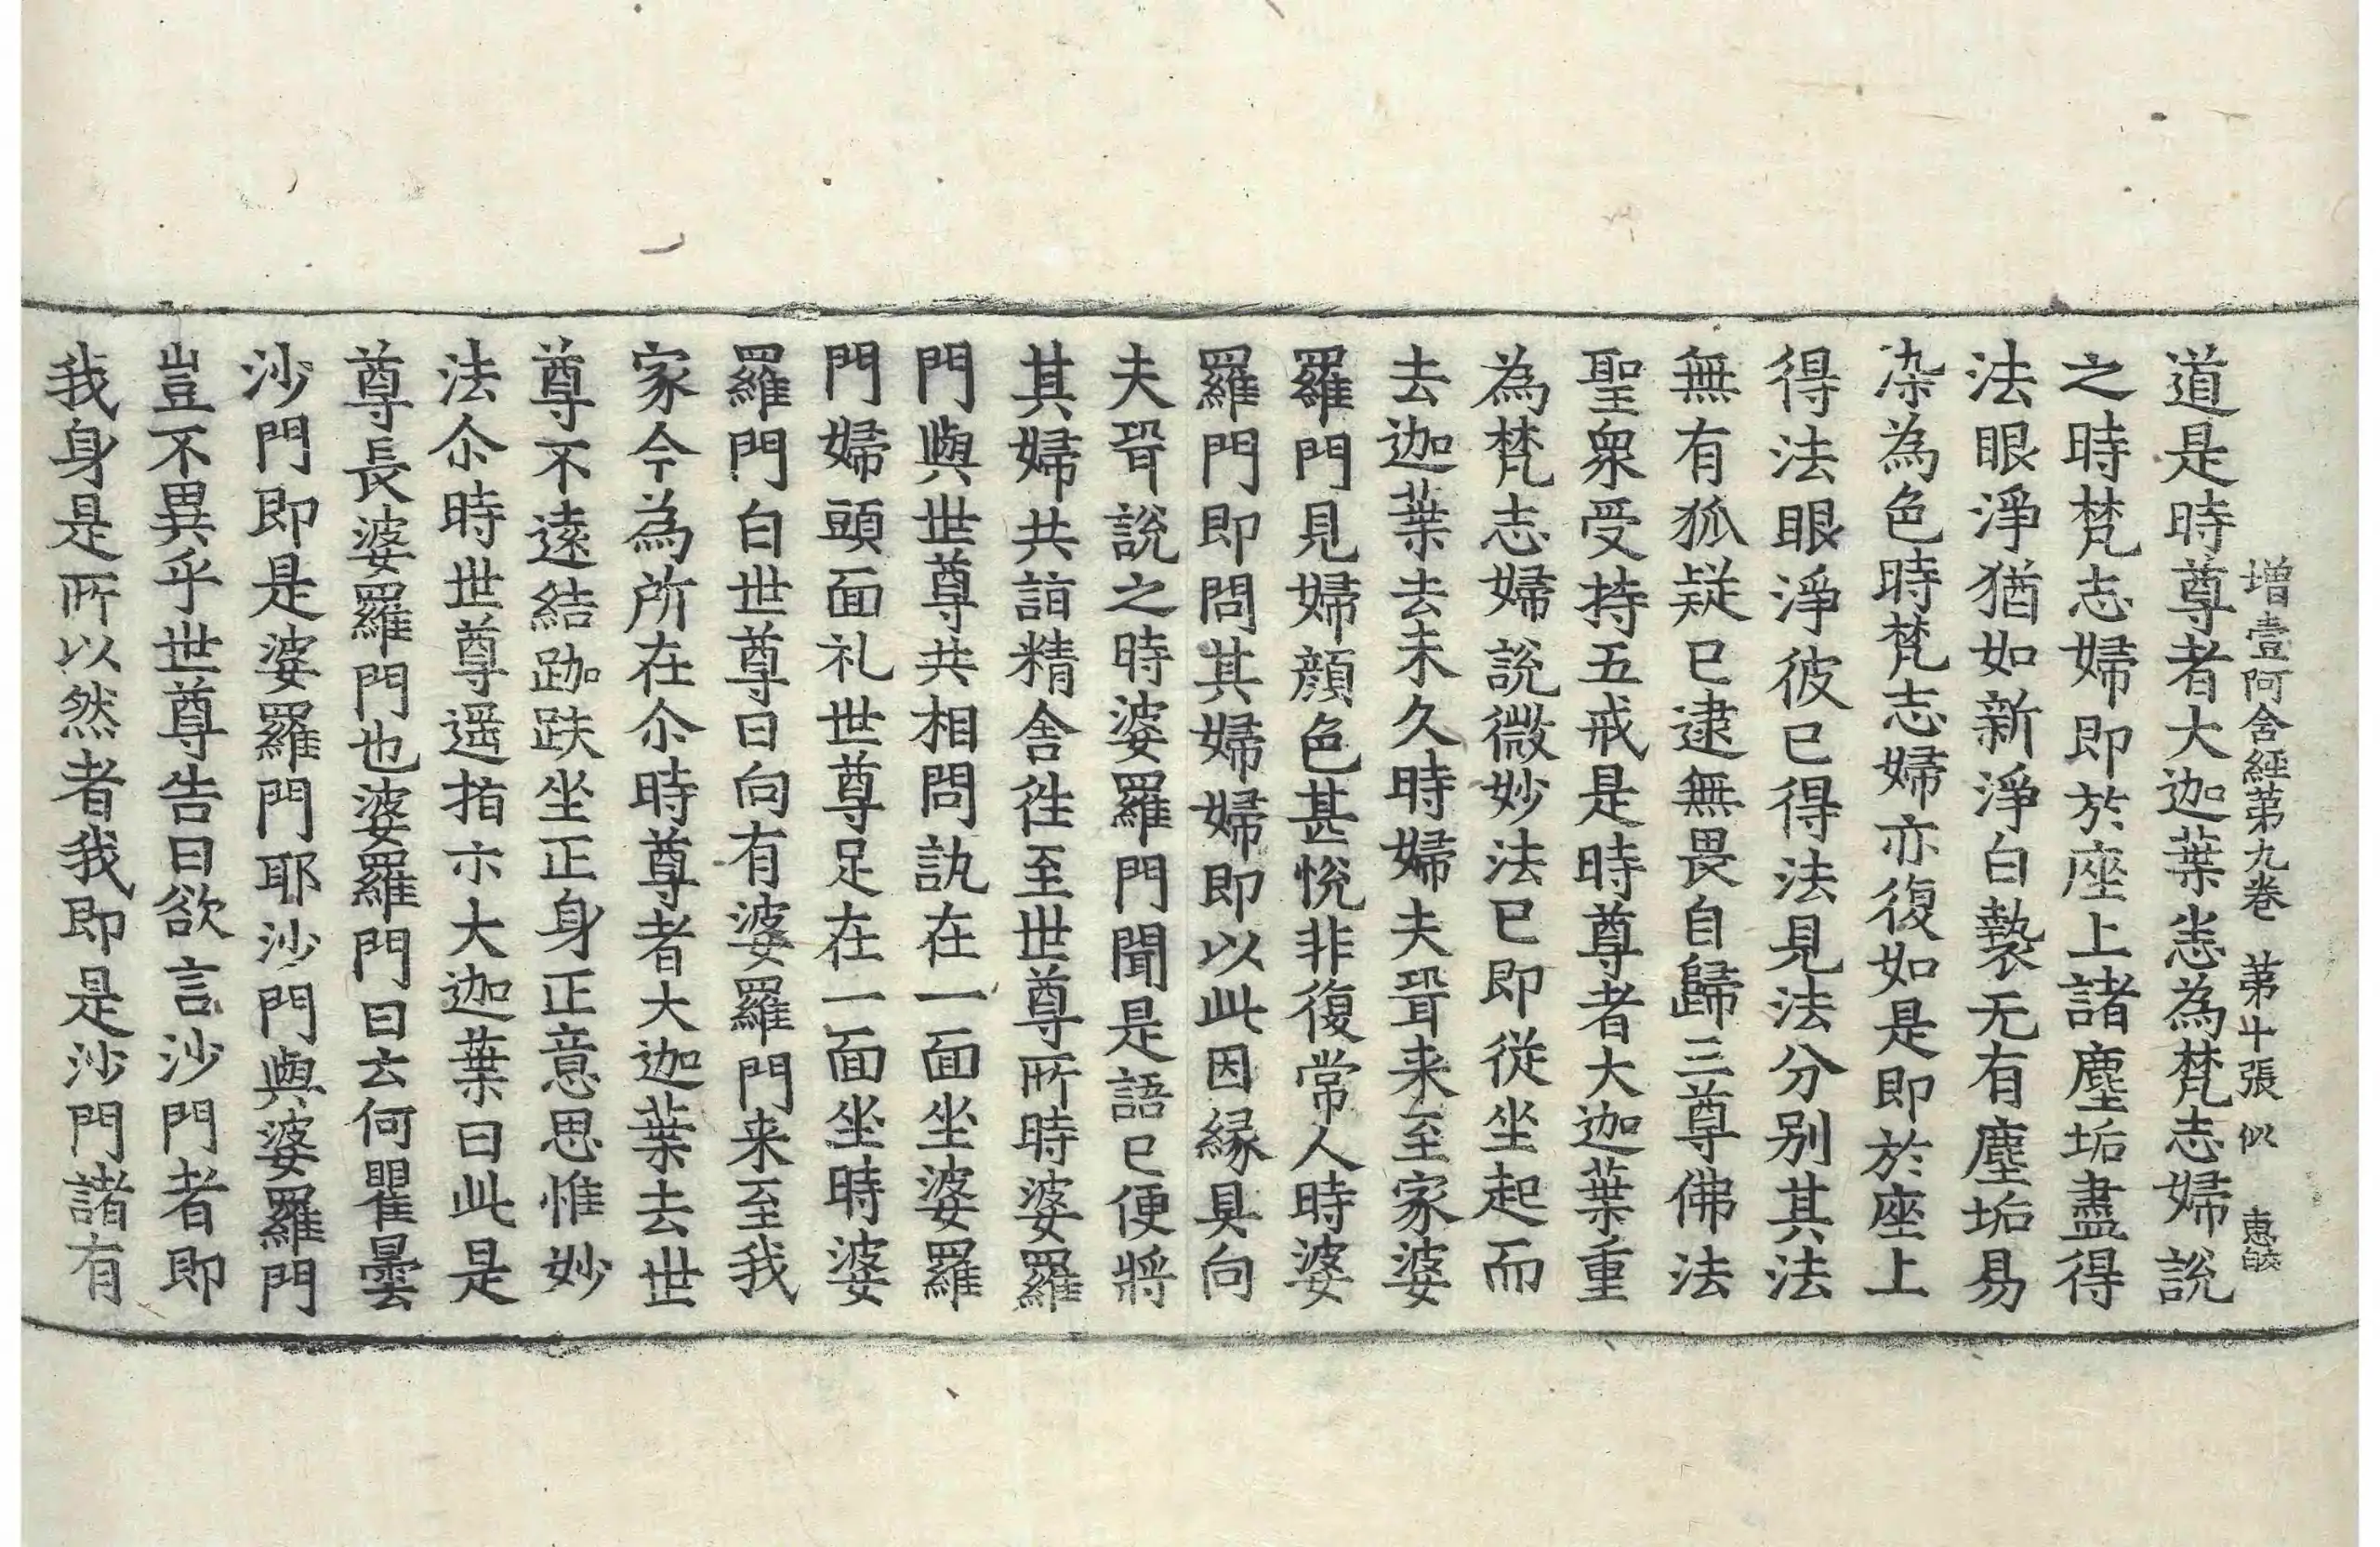 增壹阿含經第九卷 第十張 似 惠皎
道是時尊者大迦葉悉為梵志婦說
之時梵志婦即於座上諸塵垢盡得
法眼淨猶如新淨白㲲无有塵垢易
染為色時梵志婦亦復如是即於座上
得法眼淨彼已得法見法分别其法
無有狐疑已逮無畏自歸三尊佛法
聖衆受持五戒是時尊者大迦葉重
為梵志婦說微妙法已即從坐起而
去迦葉去未久時婦夫聟来至家婆
羅門見婦顔色甚悅非復常人時婆
羅門即問其婦婦即以此因緣具向
夫聟說之時婆羅門聞是語已便將
其婦共詣精舎往至世尊所時婆羅
門與世尊共相問訊在一面坐婆羅
門婦頭面礼世尊足在一面坐時婆
羅門白世尊曰向有婆羅門来至我
家今為所在尒時尊者大迦葉去世
尊不遠結跏趺坐正身正意思惟妙
法尒時世尊遥指示大迦葉曰此是
尊長婆羅門也婆羅門曰云何瞿曇
沙門即是婆羅門耶沙門與婆羅門
豈不異乎世尊告曰欲言沙門者即
我身是所以然者我即是沙門諸有